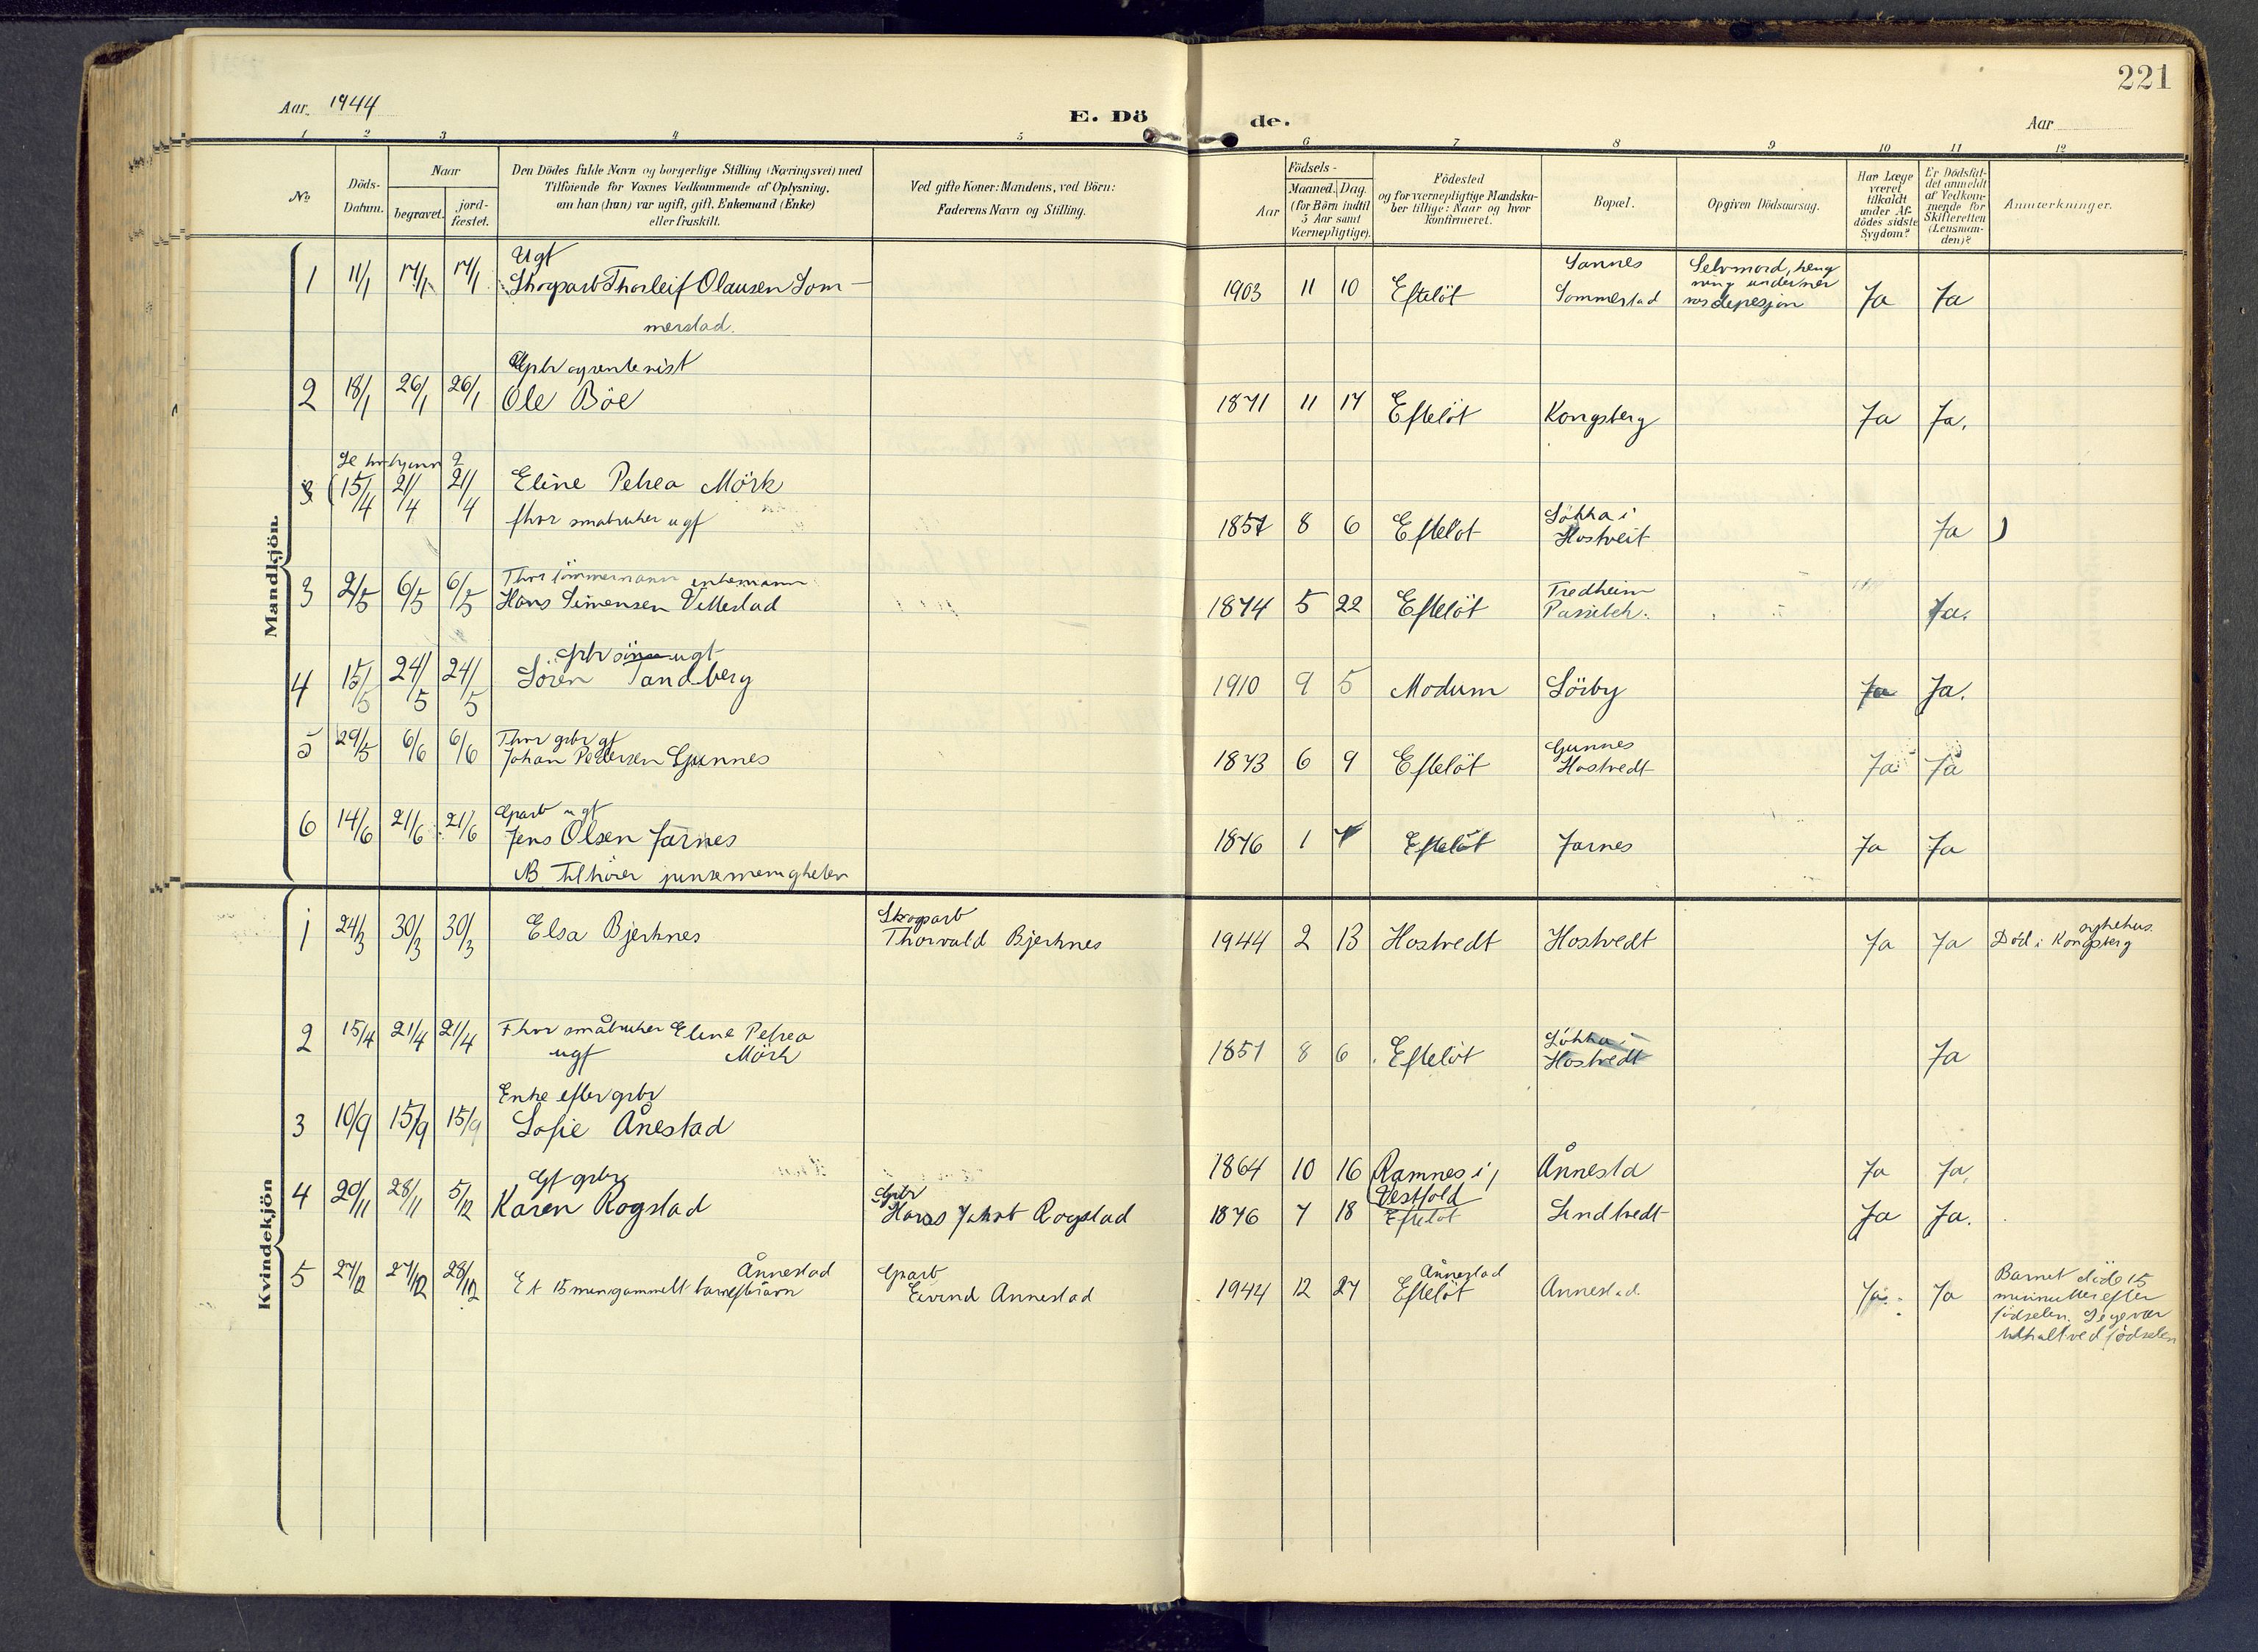 221
Aar 1944
E. Dö
de.
Aar
1 2 3 4 5 6 7 8 9 10 11 12
No
Döds-
Datum.
Naar
begravet.
jord-
fæstet.
Den Dödes fulde Navn og borgerlige Stilling (Næringsvei) med
Tilföiende for Voxnes Vedkommende af Oplysning,
om han (hun) var ugift, gift, Enkemand (Enke)
eller fraskilt.
Ved gifte Koner: Mandens, ved Börn:
Faderens Navn og Stilling.
Aar
Födsels-
Maaned. Dag.
(for Börn indtil
5 Aar samt
Værnepligtige).
Födested
og for værnepligtige Mandska-
ber tillige: Naar og hvor
konfirmeret.
Bopæl.
Opgiven Dödsaarsag.
Har Læge
været
tilkaldt
under Af-
dödes sidste
Sygdom?
Er Dödsfal-
det anmeldt
af Vedkom-
mende for
Skifteretten
(Lensman-
den)?
Anmærkninger.
Mandkjön.
1 11/1 17/1 17/1 Ugt
Skogsarb Thorleif Olausen Som-
merstad.
1903 11 10 Efteløt Sannes
Sommerstad Selvmord, heng
ning under ner
vøs depresjon Ja Ja
2 18/1 26/1 26/1 Gbr og rentenist
Ole Böe 1871 11 17 Efteløt Kongsberg Ja Ja.
Se kvinnkjønn 2
3 (15/4 21/4 21/4 Eline Petrea Mörk
fhv småbruker ugf 1857 8 6 Efteløt Løkka i
Hostveit Ja )
3 2/5 6/5 6/5 Fhv tömmermann enkemann
Hans Simensen Vittestad 1874 5 22 Efteløt Fredheim
Passebek. Ja.
4 15/5 24/5 24/5 gbr sönn ugt
Sören Sandberg 1910 9 5 Modum Sörby Ja Ja.
5 29/5 6/6 6/6 Fhv gbr gf
Johan Pedersen Gunnes 1873 6 9 Efteløt Gunnes
Hostvedt Ja Ja
6 14/6 21/6 21/6 Gparb ugf
Jens Olsen Jarnes 1876 1 7 Efteløt Jarnes Ja Ja
NB Tilhører pinsemenigheten
Kvindekjön
1 24/3 30/3 30/3 Elsa Bjerknes Skogsarb
Thorvald Bjerknes 1944 2 13 Hostvedt Hostvedt Ja Ja Död i Kongsberg
sykehus.
2 15/4 21/4 21/4 Fhv småbruker Eline Petrea
ugf Mörk 1857 8 6 Efteløt Løkka i
Hostvedt Ja
3 10/9 15/9 15/9 Enke efter gbr
Sofie Ånestad 1864 10 16 Ramnes i
Vestfold Ånnesta Ja Ja.
4 20/11 28/11 5/12 Gf gbr
Karen Rogstad Gbr
Hans Jakob Rogstad 1876 7 18 Efteløt Lindtvedt Ja Ja.
5 27/12 27/12 28/12 Et 15 min gammelt barn
Ånnestad Gparb
Eivind Ånnestad 1944 12 27 Ånnestad
Efteløt Annestad. Ja. Ja Barnet döde 15
minutter efter
fødselen. Lege var
tilkalt ved fødselen